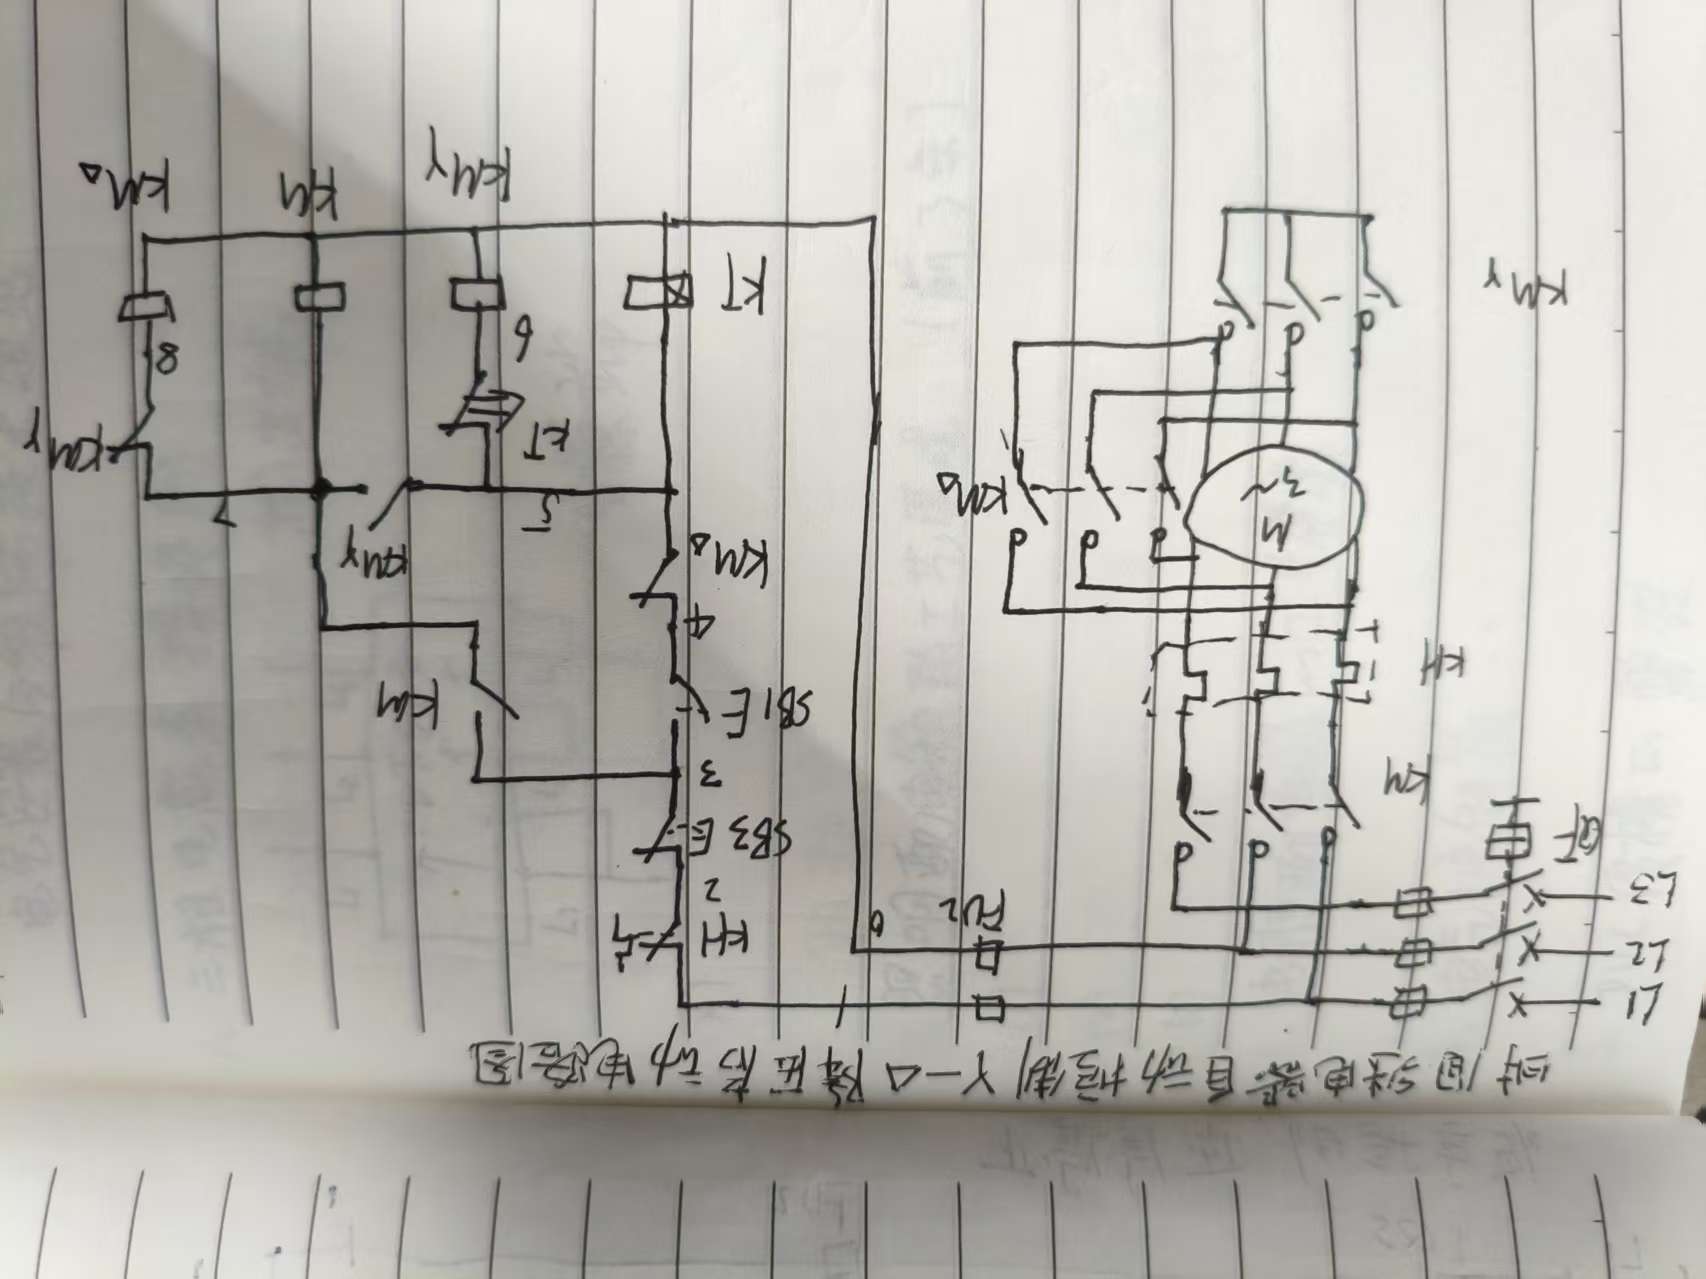 时间继电器自动控制Y—△降压启动电路图
L1
L2
L3
QF
FU2
1
0
KH
2
SB3
E
3
SB1
E
KM
4
KM△
5
KMY
7
KT
KMY
6
8
KT
KMY
KM
KM△
KM
KH
M
3~
KM△
KMY